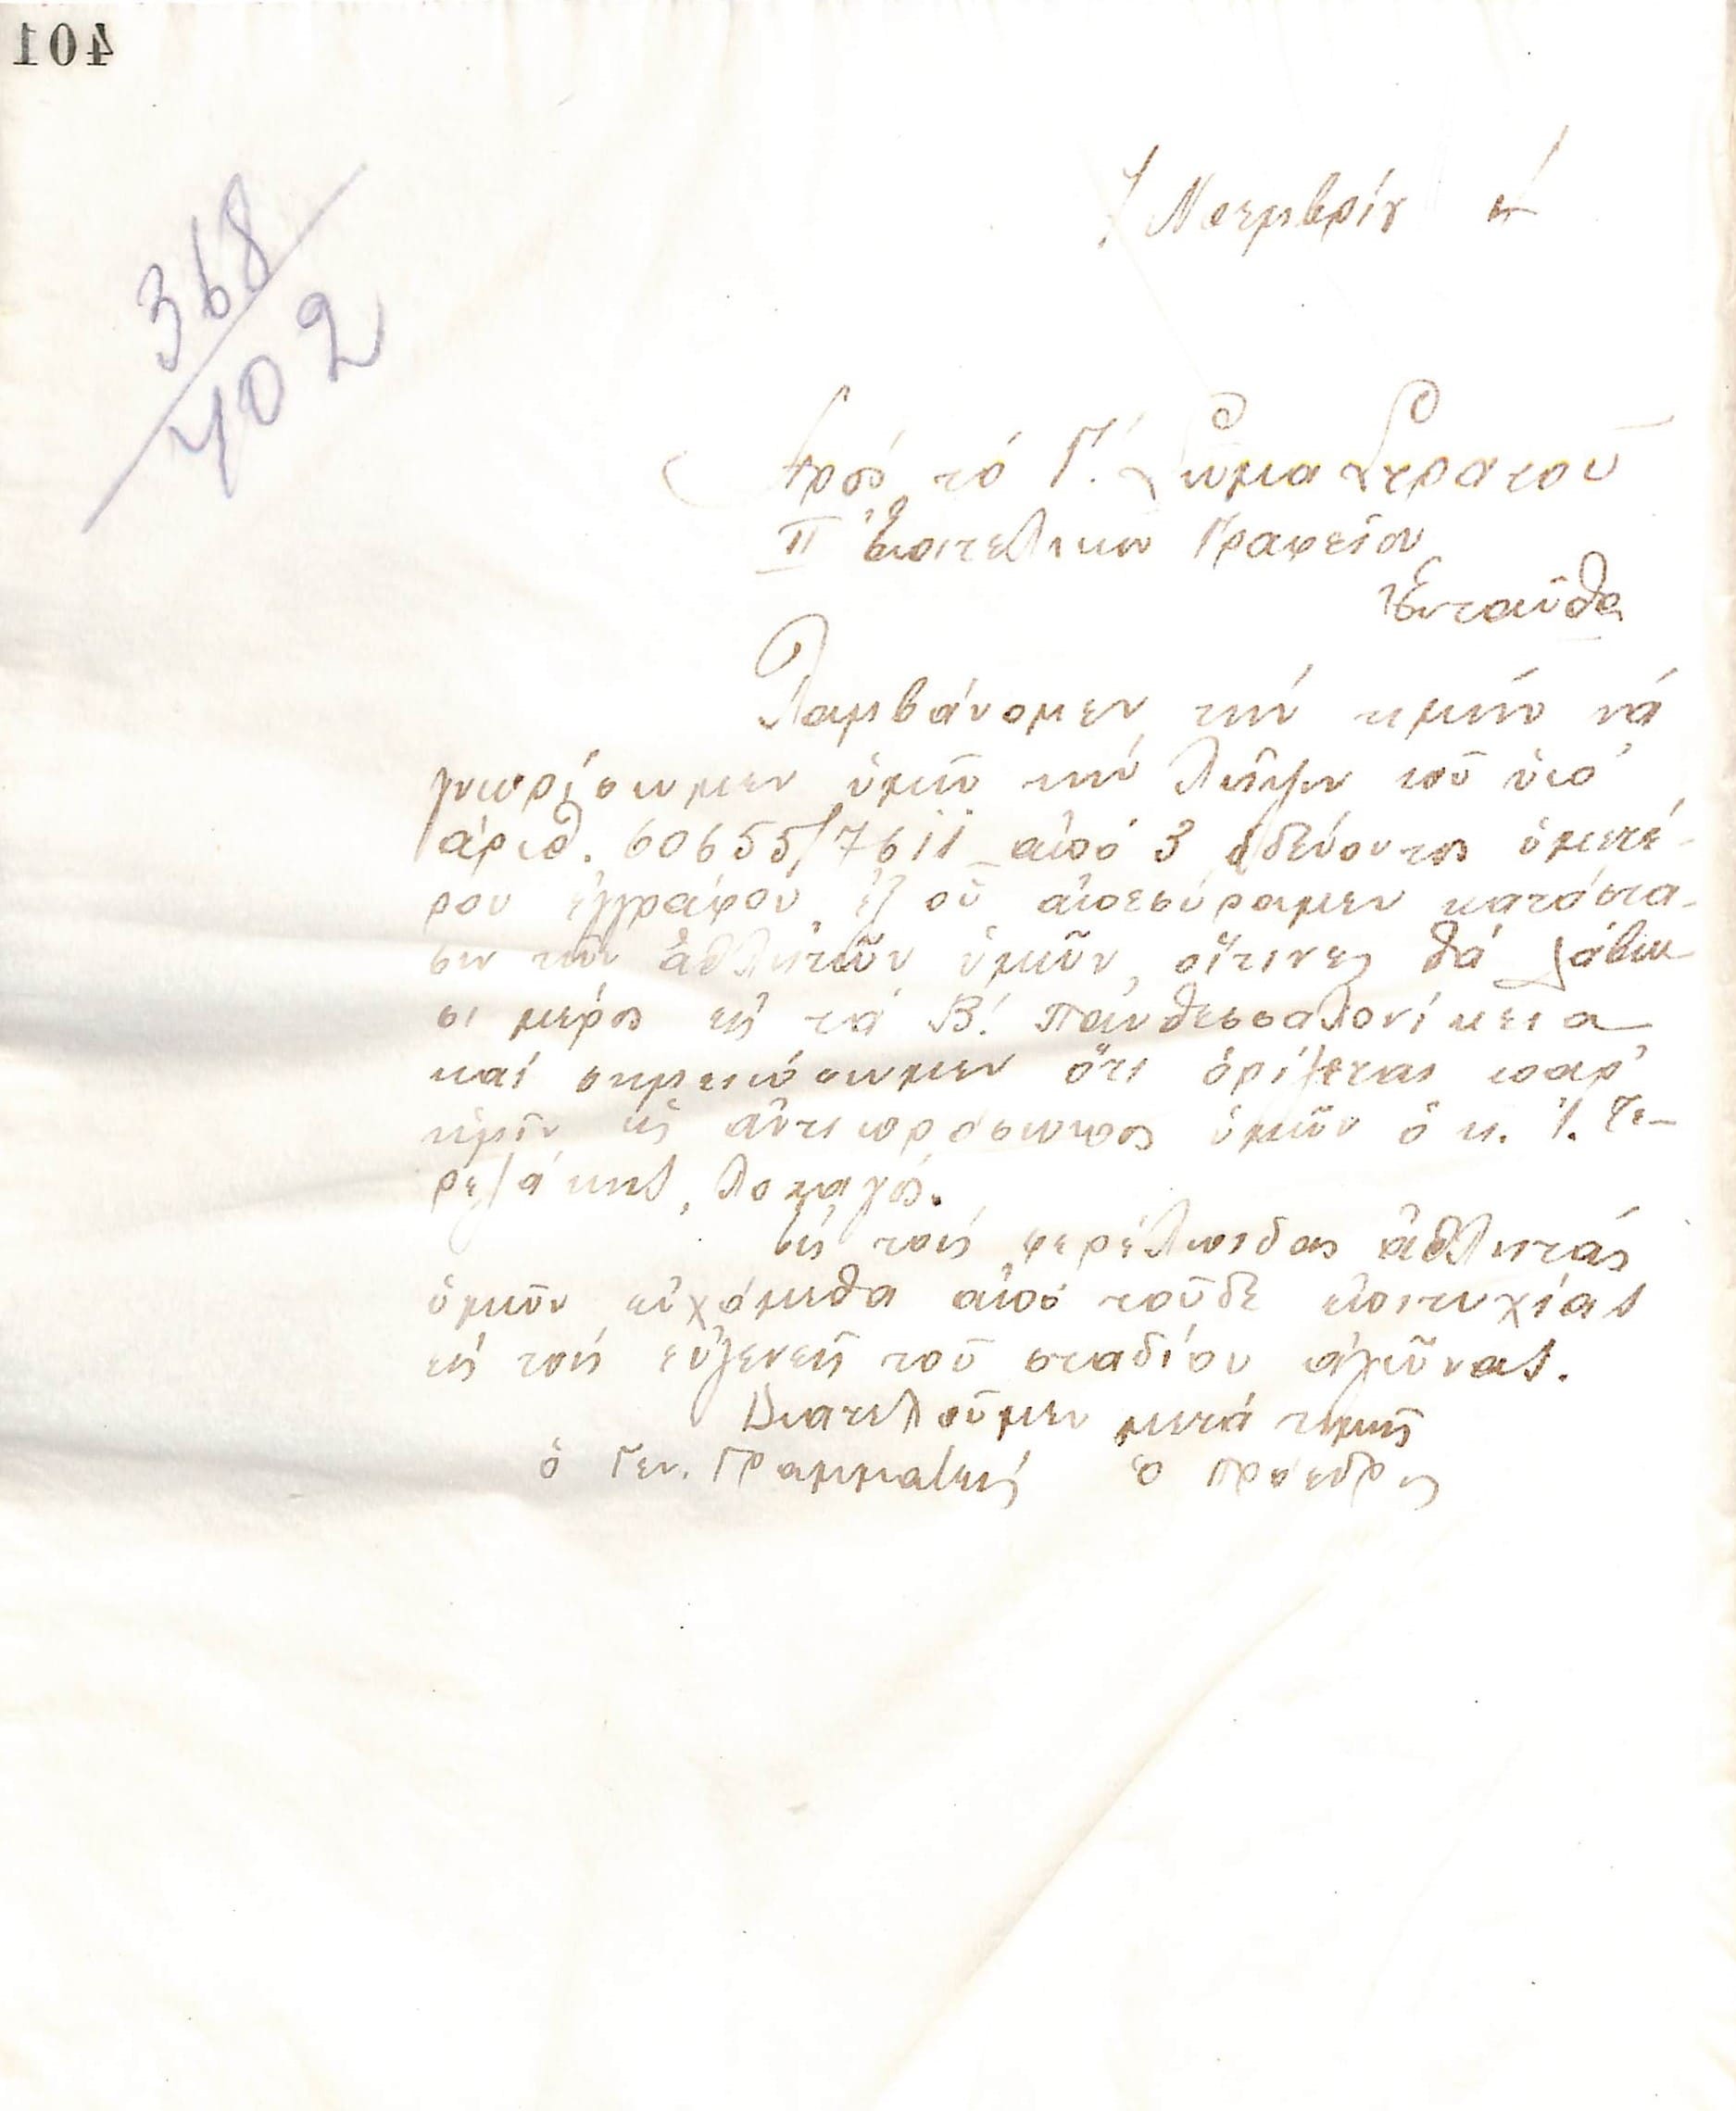 401
368
402
Νοεμβρίου
Πρός τό Γ΄. Σῶμα Στρατοῦ
ΙΙ Ἐπιτελικόν Γραφεῖον
Ἐνταῦθα
Λαμβάνομεν τήν τιμήν νά
γνωρίσωμεν ὑμῖν τήν λῆψιν τοῦ ὑπ᾽
ἀριθ. 60655/7611 ἀπό 3 ὁδεύοντος ὑμετέ-
ρου ἐγγράφου ἐξ οὗ ἀπεσύραμεν κατάστα-
σιν τῶν ἀθλητῶν ὑμῶν, οἵτινες θά λάβω-
σι μέρος εἰς τά Β΄. Πανθεσσαλονίκεια
καί σημειώσωμεν ὅτι ὁρίζεται παρ᾽
ἡμῖν ὡς ἀντιπρόσωπος ὑμῶν ὁ κ. Ι. Τε-
ρεζάκης, λοχαγός.
Εἰς τούς φερέλπιδας ἀθλητάς
ὑμῶν εὐχόμεθα ἀπό τοῦδε ἐπιτυχίας
εἰς τούς εὐγενεῖς τοῦ σταδίου ἀγῶνας.
Διατελοῦμεν μετά τιμῆς
ὁ Γεν. Γραμματεύς ὁ Πρόεδρος